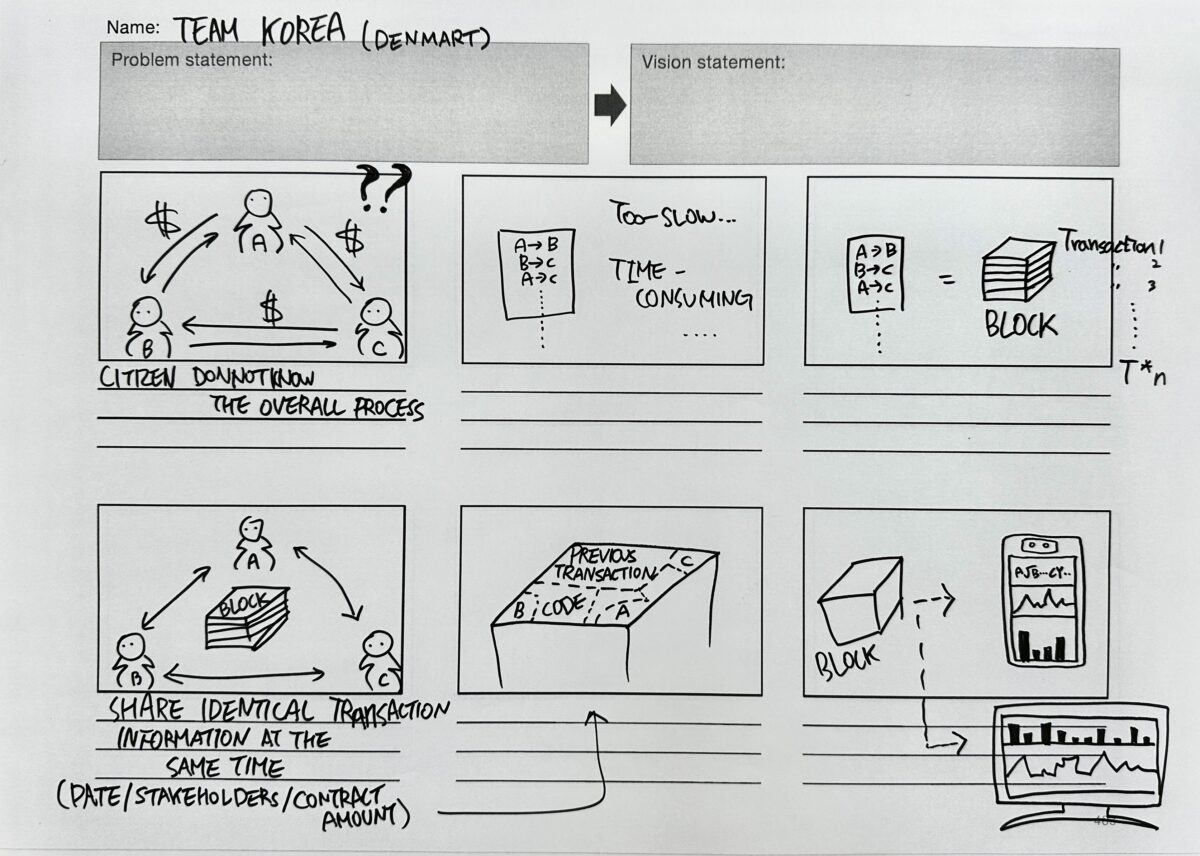 Name: TEAM KOREA (DENMART)
Problem statement:
Vision statement:
??
$
$
$
A
B
C
CITIZEN DONNOTKNOW
THE OVERALL PROCESS
A→B
B→C
A→C
TOO-SLOW...
TIME-
CONSUMING
....
A→B
B→C
A→C
=
BLOCK
Transaction 1
" 2
" 3
T*n
A
BLOCK
B
C
SHARE IDENTICAL TRANSACTION
INFORMATION AT THE
SAME TIME
(DATE/STAKEHOLDERS/CONTRACT
AMOUNT)
PREVIOUS
TRANSACTION
C
B
CODE
A
BLOCK